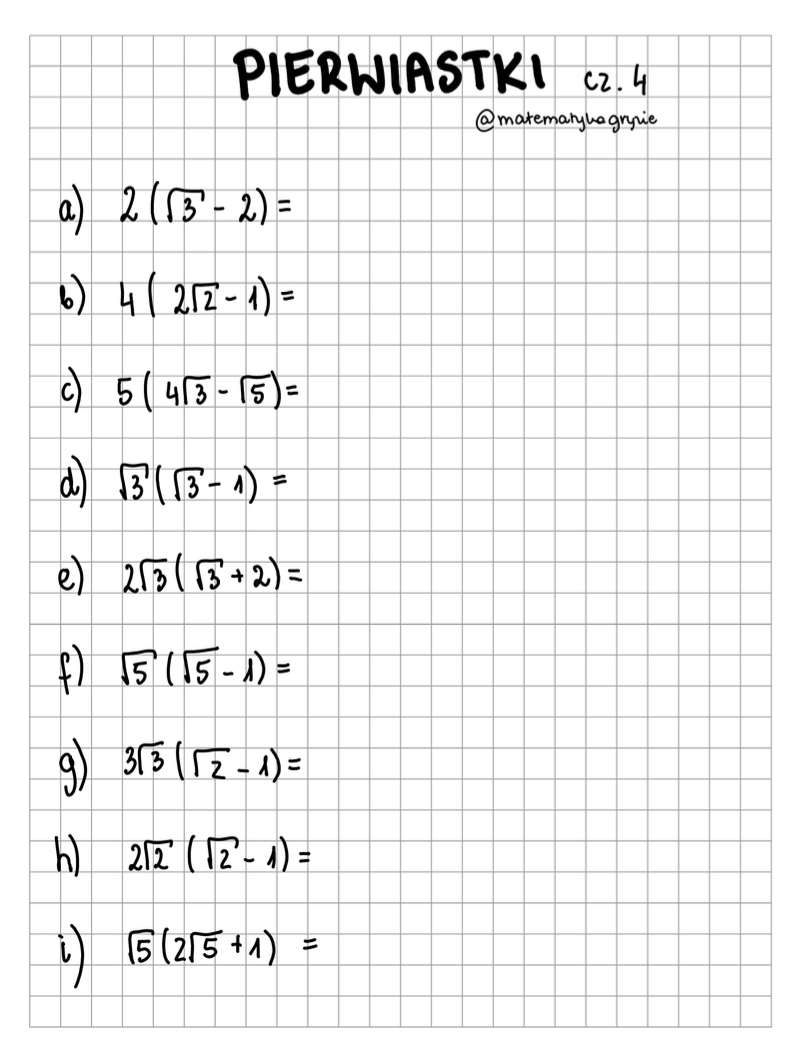 PIERWIASTKI cz. 4
@matematykagryzie
a) 2(√3 - 2) =
b) 4(2√2 - 1) =
c) 5(4√3 - √5) =
d) √3(√3 - 1) =
e) 2√3(√3 + 2) =
f) √5(√5 - 1) =
g) 3√3(√2 - 1) =
h) 2√2(√2 - 1) =
i) √5(2√5 + 1) =